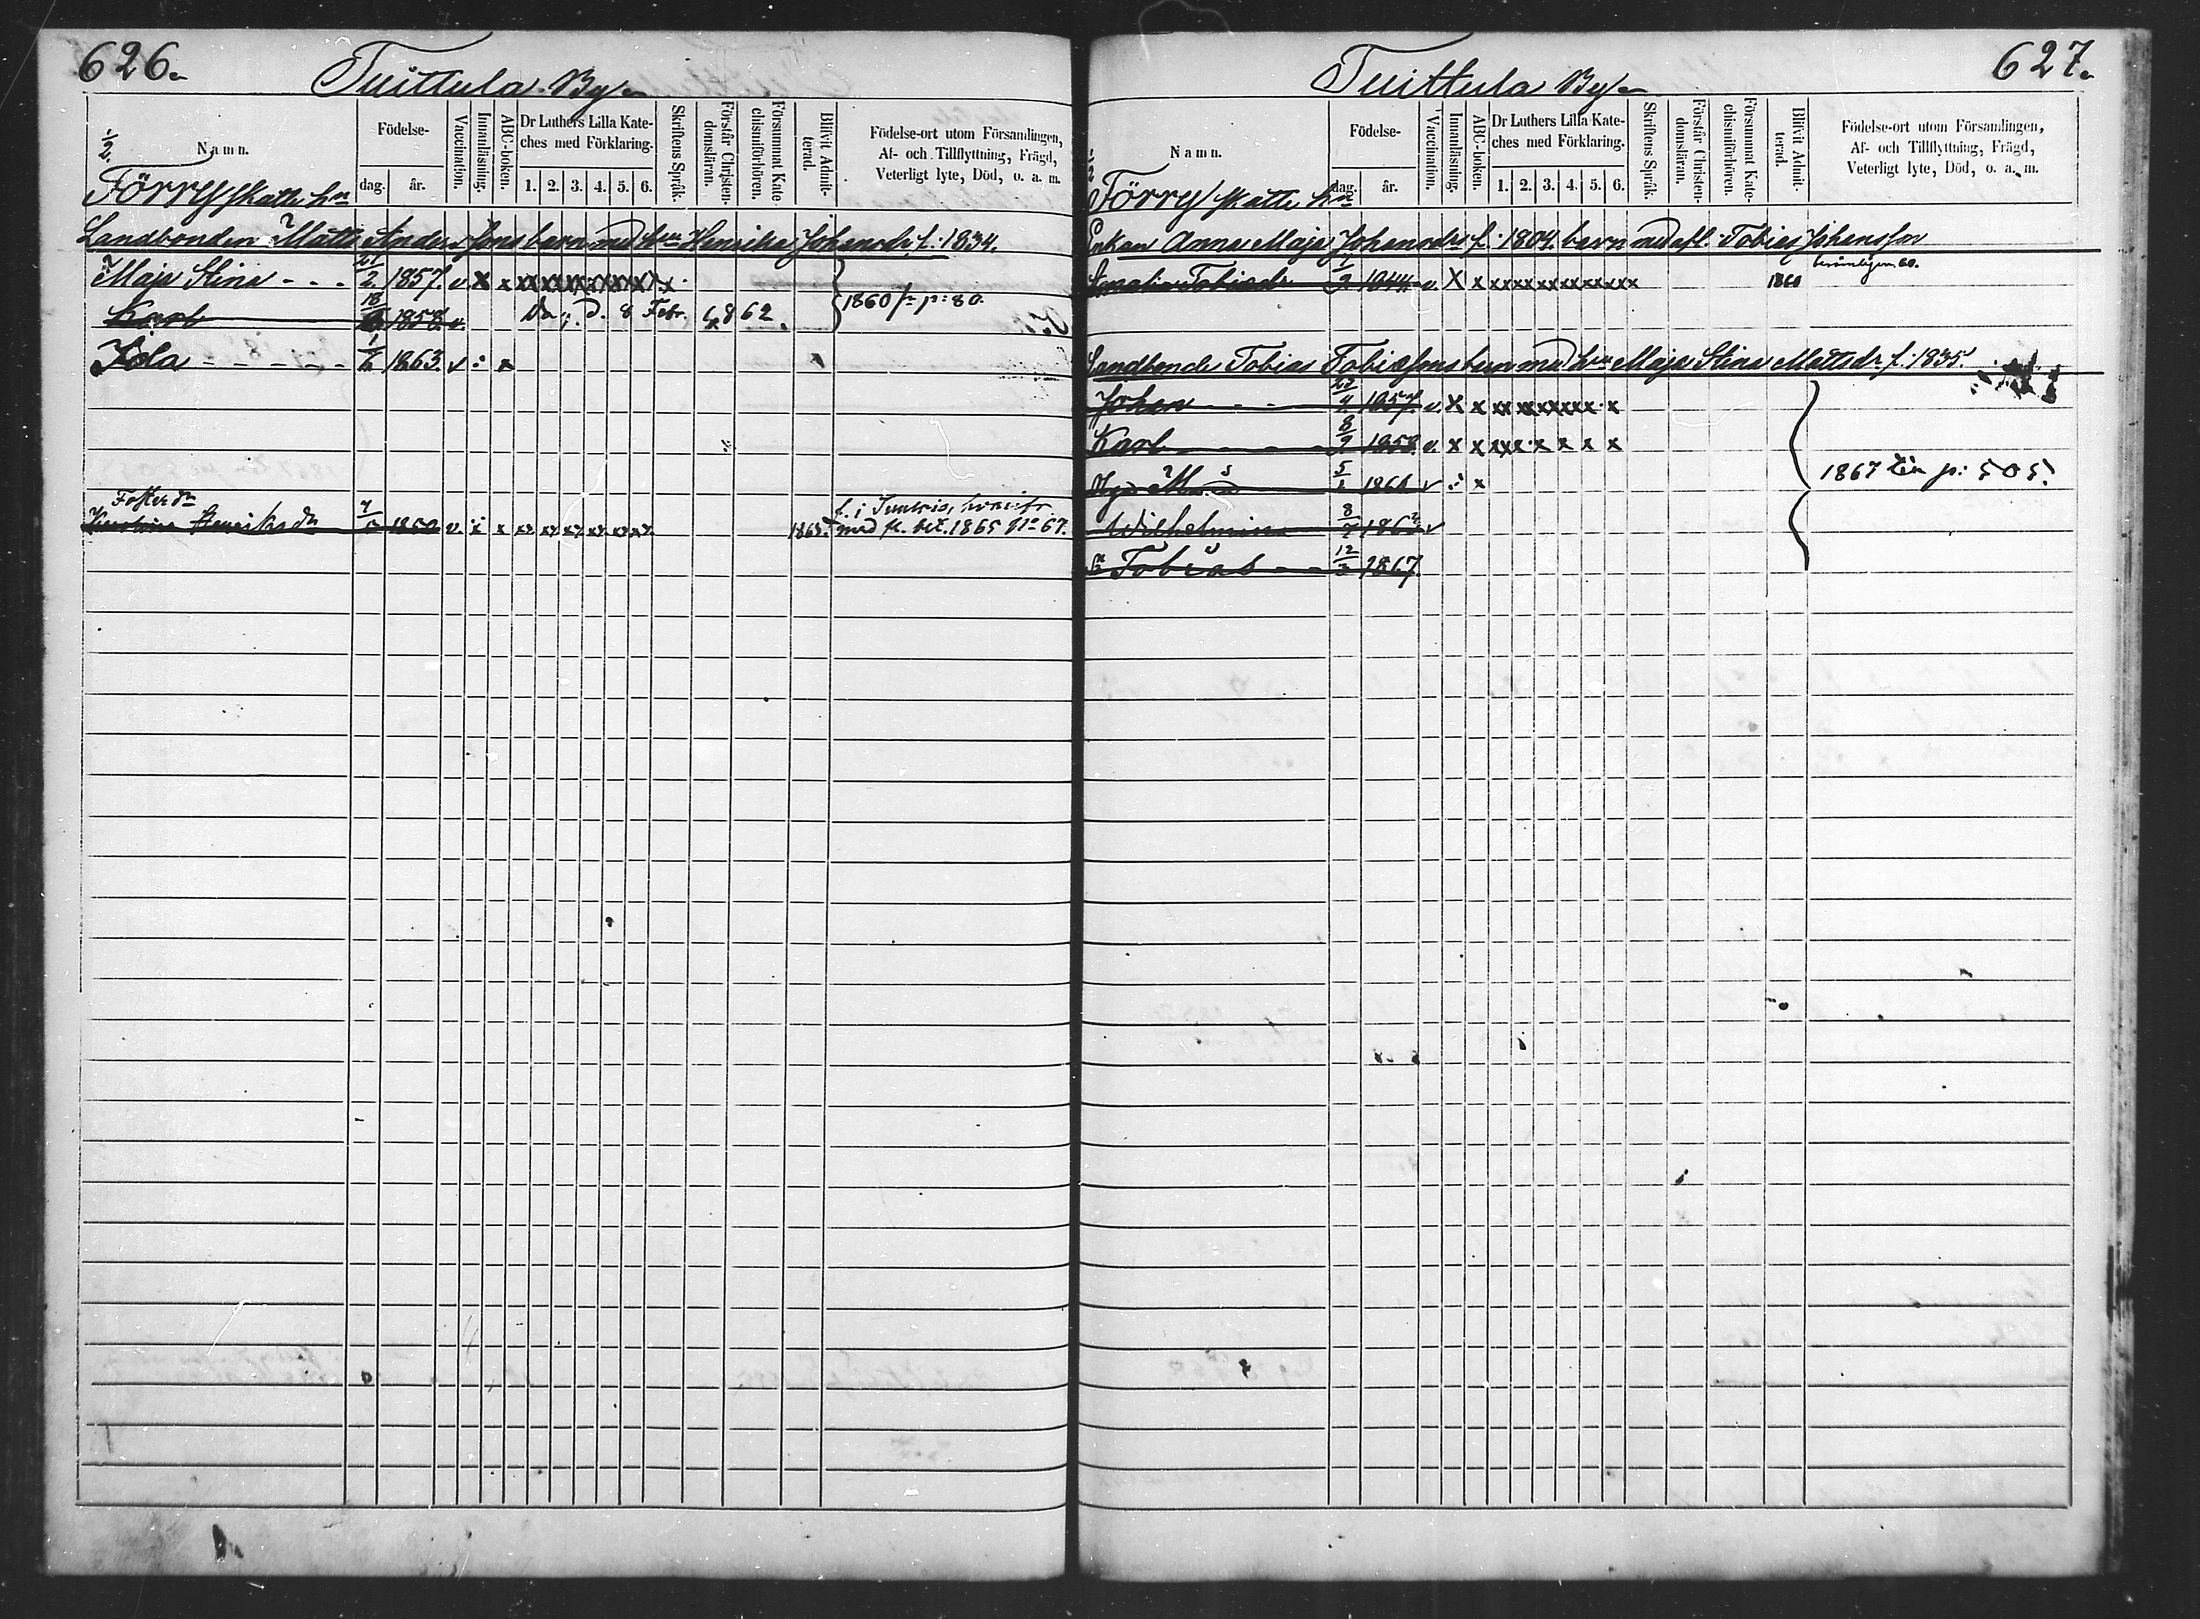 626.
Tuittula By
1/2
Namn.
Födelse-
dag. år.
Vaccination.
Innanläsning.
ABC-boken.
Dr Luthers Lilla Kate-
ches med Förklaring.
1. 2. 3. 4. 5. 6.
Skriftens Språk.
Förstår Christen-
domsläran.
Försummat Kate-
chismiförhören.
Blifvit Admit-
terad.
Födelse-ort utom Församlingen,
Af- och Tillflyttning, Frägd,
Veterligt lyte, Död, o. a. m.
Förry Skatte hn
Landbonden Matts Andersons barn med hu Henrika Johansdr f. 1834.
Maja Stina - - - 21/2 1857. v. x x xx xx xx xx xx xx x
Karl 1858. v. Da; d. 8 Febr. 1862. 1860 fr. p: 80.
Ida - - - - - 1863. v
Fosterdr
Karolina Henriksdr 1850 v. x 1865. med fl. bet. 1865 No 67.
627.
Tuittula By
1/2
Namn.
Födelse-
dag. år.
Vaccination.
Innanläsning.
ABC-boken.
Dr Luthers Lilla Kate-
ches med Förklaring.
1. 2. 3. 4. 5. 6.
Skriftens Språk.
Förstår Christen-
domsläran.
Försummat Kate-
chismiförhören.
Blifvit Admit-
terad.
Födelse-ort utom Församlingen,
Af- och Tillflyttning, Frägd,
Veterligt lyte, Död, o. a. m.
Förry Skatte hn
Enkan Anna Maja Johansdrs f. 1804. barn med afl. Tobias Johansson
Tobiasdr 1844. v. X x xx xx xx xx xx xx x 1860
Landbonde Tobias Tobiasons barn med hu Maja Stina Mattsdr f. 1835.
Johan - - 1857. v. X x xx xx xx xx x x
Karl - - - 8/9 1858. v. x x xx x x x x x
5/1 1861 v x 1867 p: 505.
Wilhelmina 8/7 186 v
Tobias - - 12/3 1867.